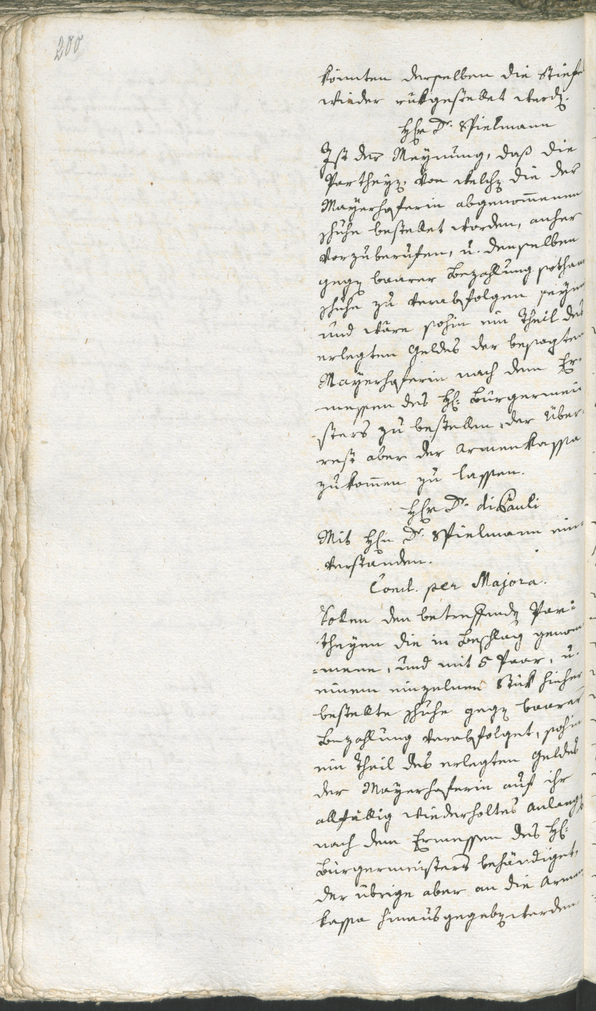 200
könnten derselben die Stiefl
wieder rükgestellet werdꝫ.
Hr. Dr. Spielmann
Ist der Meynung, daß die
Partheyꝫ, von welchꝫ die der
Mayerhoferin abgenommenen
Shuhe bestellet worden, anher
vorzuberufen, u. denselben
gegꝫ baarer Bezahlung sothane
Shuhe zu verabfolgen seyen
und wäre sohin ein Theil des
erlegten Geldes der besagten
Mayerhoferin nach dem Er-
messen des H. Bürgermei-
sters zu bestellen, der Über-
rest aber der Armenkassa
zukommen zu lassen.
Hr. Dr. di Pauli
Mit Hn. Dr. Spielmann ein-
verstanden.
Concl. per Majora.
Sollen den betreffendꝫ Par-
theyen die in Beschlag genom-
mene, und mit 5 Paar, u.
einem einzelnen Stük hieher
bestellte Shuhe gegꝫ baarer
Bezahlung verabfolget, sohin
ein Theil des erlegten Geldes
der Mayerhoferin auf ihr
allfällig wiederholtes Anlangen
nach dem Ermessen des H.
Bürgermeisters behändiget,
der übrige aber an die Armen
kassa hinausgegebꝫ werden